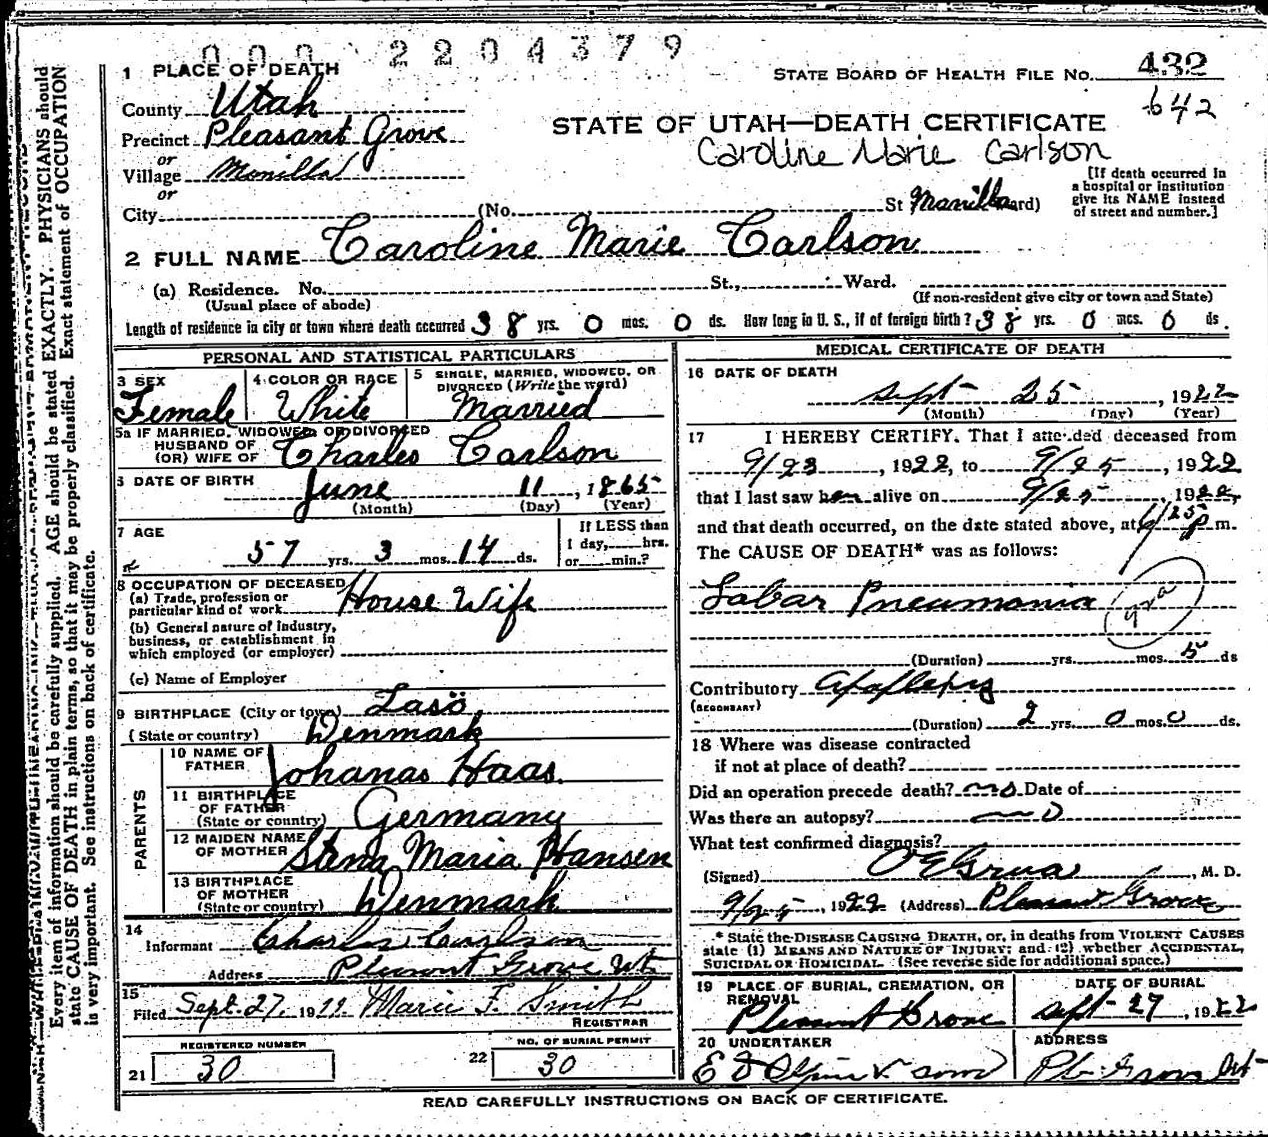 000 2204379
1 PLACE OF DEATH
STATE BOARD OF HEALTH FILE No. 432
County Utah
642
Precinct Pleasant Grove
STATE OF UTAH—DEATH CERTIFICATE
Caroline Marie Carlson
or
Village Manilla
or
City (No. St Manilla Ward)
[If death occurred in
a hospital or institution
give its NAME instead
of street and number.]
2 FULL NAME Caroline Marie Carlson
(a) Residence. No. St., Ward.
(Usual place of abode) (If non-resident give city or town and State)
Length of residence in city or town where death occurred 38 yrs. 0 mos. 0 ds. How long in U. S., if of foreign birth? 38 yrs. 0 mos. 0 ds.
PERSONAL AND STATISTICAL PARTICULARS
3 SEX
Female
4 COLOR OR RACE
White
5 SINGLE, MARRIED, WIDOWED, OR
DIVORCED (Write the word)
Married
5a IF MARRIED, WIDOWED, OR DIVORCED
HUSBAND OF
(OR) WIFE OF Charles Carlson
6 DATE OF BIRTH
June 11, 1865
(Month) (Day) (Year)
7 AGE
57 yrs. 3 mos. 14 ds.
If LESS than
1 day, hrs.
or min.?
8 OCCUPATION OF DECEASED
(a) Trade, profession or
particular kind of work House Wife
(b) General nature of industry,
business, or establishment in
which employed (or employer)
(c) Name of Employer
9 BIRTHPLACE (City or town) Lasö
(State or country) Denmark
PARENTS
10 NAME OF
FATHER Johanas Haas
11 BIRTHPLACE
OF FATHER
(State or country) Germany
12 MAIDEN NAME
OF MOTHER Maria Hansen
13 BIRTHPLACE
OF MOTHER
(State or country) Denmark
14
Informant Charles Carlson
Address Pleasant Grove Ut.
15
Filed Sept. 27, 19 Marie F. Smith
REGISTRAR
REGISTERED NUMBER
21 30
NO. OF BURIAL PERMIT
22 30
MEDICAL CERTIFICATE OF DEATH
16 DATE OF DEATH
Sept 25, 1922
(Month) (Day) (Year)
17 I HEREBY CERTIFY, That I attended deceased from
9/23, 1922, to 9/25, 1922
that I last saw her alive on 9/25, 1922,
and that death occurred, on the date stated above, at 6/25 P m.
The CAUSE OF DEATH* was as follows:
Lobar Pneumonia
(Duration) yrs. mos. 5 ds
Contributory
(SECONDARY)
(Duration) 2 yrs. 0 mos. 0 ds.
18 Where was disease contracted
if not at place of death?
Did an operation precede death? no Date of
Was there an autopsy? no
What test confirmed diagnosis?
(Signed) O E Grua, M. D.
9/25, 1922 (Address) Pleasant Grove
* State the DISEASE CAUSING DEATH, or, in deaths from VIOLENT CAUSES
state (1) MEANS AND NATURE OF INJURY; and (2) whether ACCIDENTAL,
SUICIDAL OR HOMICIDAL. (See reverse side for additional space.)
19 PLACE OF BURIAL, CREMATION, OR
REMOVAL
Pleasant Grove
DATE OF BURIAL
Sept 27, 1922
20 UNDERTAKER
ADDRESS
Pl. Grove Ut
READ CAREFULLY INSTRUCTIONS ON BACK OF CERTIFICATE.
Every item of information should be carefully supplied. AGE should be stated EXACTLY. PHYSICIANS should
state CAUSE OF DEATH in plain terms, so that it may be properly classified. Exact statement of OCCUPATION
is very important. See instructions on back of certificate.